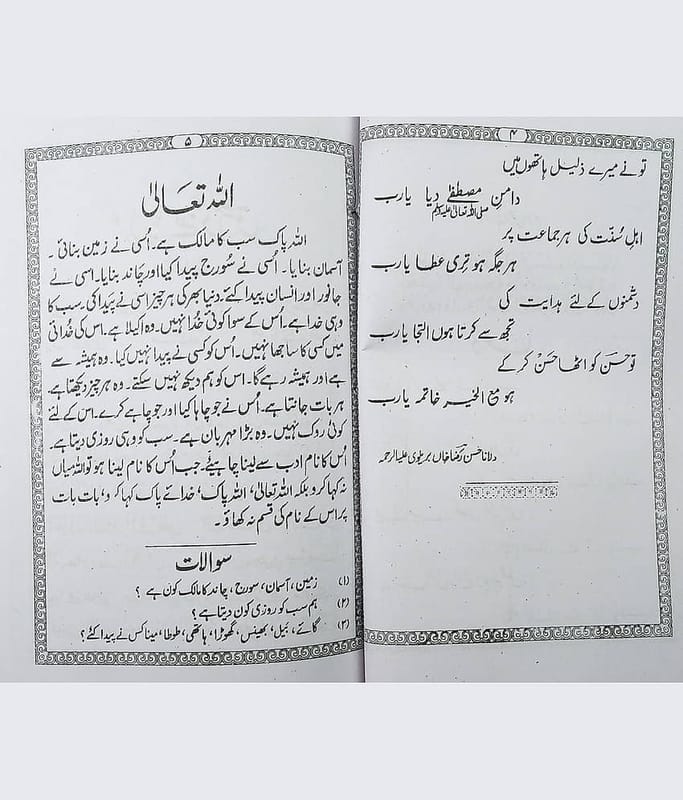 ۴
تو نے میرے ذلیل ہاتھوں میں
دامنِ مصطفےٰ دیا یارب
صلی اللہ تعالیٰ علیہ وسلم
اہلِ سُنّت کی ہر جماعت پر
ہر جگہ ہو تری عطا یارب
دشمنوں کے لئے ہدایت کی
تجھ سے کرتا ہوں التجا یارب
تو حسن کو اٹھا حَسَنْ کر کے
ہو مع الخیر خاتمہ یارب
ولانا حسن رَضَا خاں بریلوی علیہ الرحمہ
۵
اللہ تعَالیٰ
اللہ پاک سب کا مالک ہے۔ اُسی نے زمین بنائی۔
آسمان بنایا۔ اُسی نے سُورج پیدا کیا اور چاند بنایا۔ اسی نے
جانور اور انسان پیدا کئے۔ دنیا بھر کی ہر چیز اسی نے پیدا کی۔ سب کا
وہی خدا ہے۔ اُس کے سوا کوئی خُدا نہیں۔ وہ اکیلا ہے۔ اس کی خدائی
میں کسی کا ساجھا نہیں۔ اُس کو کسی نے پیدا نہیں کیا۔ وہ ہمیشہ سے
ہے اور ہمیشہ رہے گا۔ اس کو ہم دیکھ نہیں سکتے۔ وہ ہر چیز دیکھتا ہے
ہر بات جانتا ہے۔ اُس نے جو چاہا کیا اور جو چاہے کرے۔ اس کے لئے
کوئی روک نہیں۔ وہ بڑا مہربان ہے۔ سب کو وہی روزی دیتا ہے۔
اُس کا نام ادب سے لینا چاہیئے۔ جب اُس کا نام لینا ہو تو اللہ میاں
نہ کہا کرو بلکہ اللہ تعالیٰ، اللہ پاک، خدائے پاک کہا کرو، بات بات
پر اس کے نام کی قسم نہ کھاؤ۔
سوالات
(۱) زمین، آسمان، سورج، چاند کا مالک کون ہے ؟
(۲) ہم سب کو روزی کون دیتا ہے؟
(۳) گائے، بَیل، بھینس، گھوڑا، ہاتھی، طوطا، مینا کس نے پیدا کئے؟